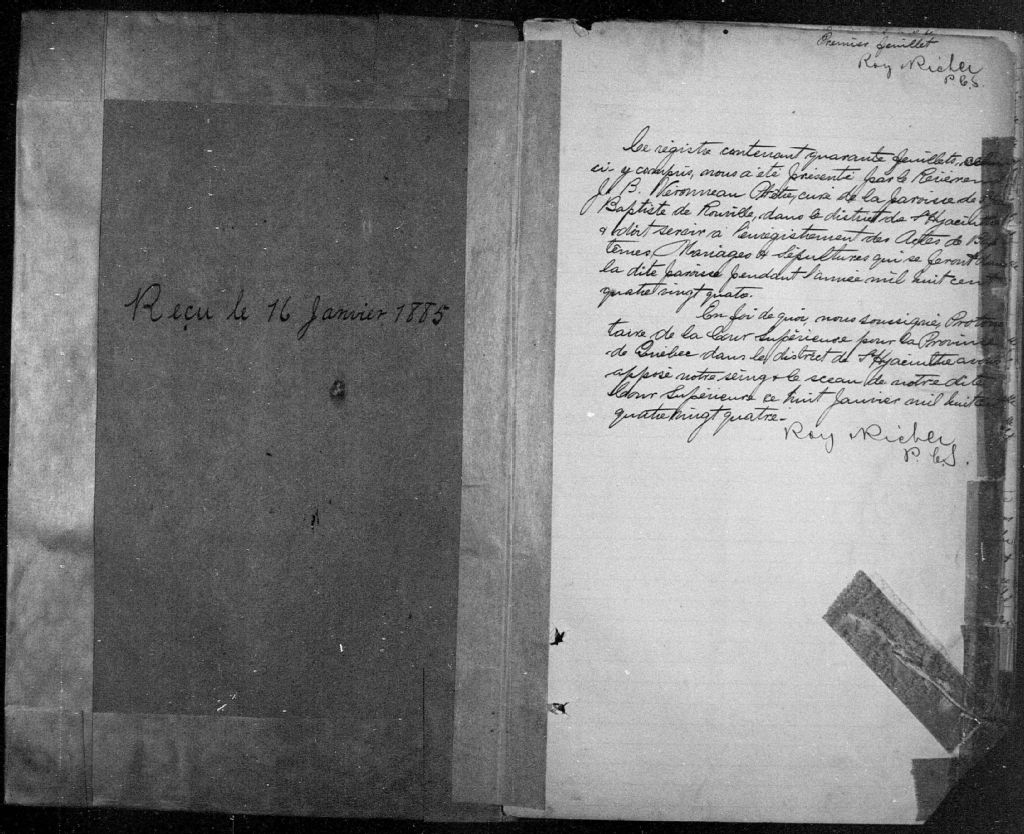 Reçu le 16 Janvier 1885
Premier feuillet
Roy & Richer
P.C.S.
Ce régistre contenant quarante feuillets,
ci y compris, nous a été présenté par le Réveren
J. B. Véronneau Ptre, curé de la paroisse de St
Baptiste de Rouville, dans le district de St Hyacinthe
& doit servir à l'enregistrement des Actes de Bap
têmes, Mariages & Sépultures qui se feront dans
la dite paroisse pendant l'année mil huit cent
quatre vingt quatre.
En foi de quoi, nous soussigné, Protono
taire de la Cour Supérieure pour la Province
de Québec dans le district de St Hyacinthe avons
apposé notre seing & le sceau de notre dite
Cour Supérieure ce huit Janvier mil huit cent
quatre vingt quatre.
Roy & Richer
P.C.S.